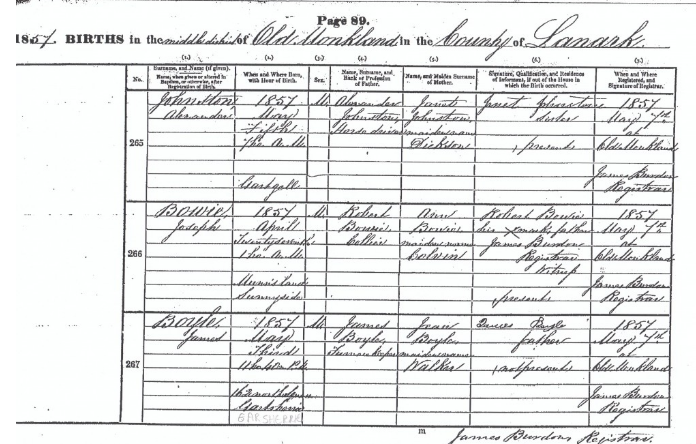 Page 89.
1857. BIRTHS in the middle district of Old Monkland in the County of Lanark.
(1.) (2.) (3.) (4.) (5.) (6.) (7.)
No.
Surname, and Name (if given).
Name, when given or altered in Baptism, or otherwise, after Registration of Birth.
When and Where Born, with Hour of Birth.
Sex.
Name, Surname, and Rank or Profession of Father.
Name, and Maiden Surname of Mother.
Signature, Qualification, and Residence of Informant, if out of the House in which the Birth occurred.
When and Where Registered, and Signature of Registrar.
265
Johnston
Alexander
1857
May
Fifth
A.M.
M.
Alexander
Johnston
Janet
Johnston
maiden name
Janet Johnston
sister
present
1857
May 7th
at
Old Monkland
James Burdon
Registrar
266
Bowie
Joseph
1857
April
Twenty seventh
A.M.
Sunnyside
M.
Robert
Bowie
Collier
Ann
Bowie
maiden name
Robert Bowie
his x mark, father
James Burdon
Registrar
Witness
present
1857
May 7th
at
Old Monkland
James Burdon
Registrar
267
Boyle
James
1857
May
Third
P.M.
Gartsherrie
M.
James
Boyle
Jean
Boyle
maiden name
Walker
James Boyle
father
not present
1857
May 7th
at
Old Monkland
James Burdon
Registrar
James Burdon, Registrar